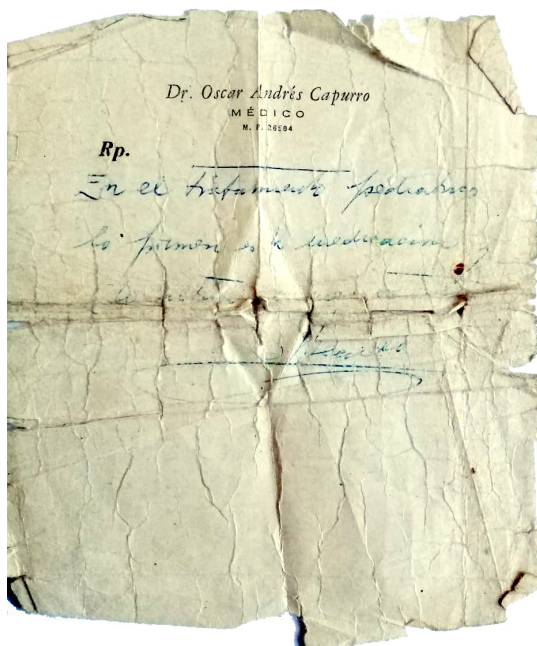 Dr. Oscar Andrés Capurro
MÉDICO
M. P. 26584
Rp.
En el tratamiento pediatrico
lo primero es la medicacion